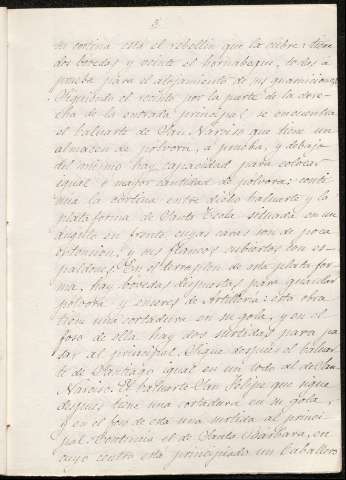 3.
su cortina está el rebellin que la cubre: tiene
dos bovedas y veinte el hornabeque, todas á
prueba para el alojamiento de sus guarniciones.
Siguiendo el recinto por la parte de la dere-
cha de la entrada principal se encuentra
el baluarte de San Narciso que tiene un
almacen de polvora, á prueba, y debajo
del mismo hay capacidad para colocar
igual ó mayor cantidad de polvora: conti-
nua la cortina entre dicho baluarte y la
plataforma de Santa Escala situada en un
angulo en frente cuyas caras son de poca
ostencion, y sus flancos cubiertos con es-
paldones. En el terraplen de esta platafor-
ma, hay bovedas dispuestas para guardar
polvora y enseres de Artilleria: esta obra
tiene una cortadura en su gola, y en el
foso de ella hay dos surtidas para pa-
sar al principal. Sigue despues el baluar-
te de Santiago igual en un todo al de San
Narciso. El baluarte San Felipe que sigue
despues tiene una cortadura en su gola,
y en el foso de esta una surtida al princi-
pal. Continua el de Santa Barbara, en
cuyo centro está principiado un Caballero